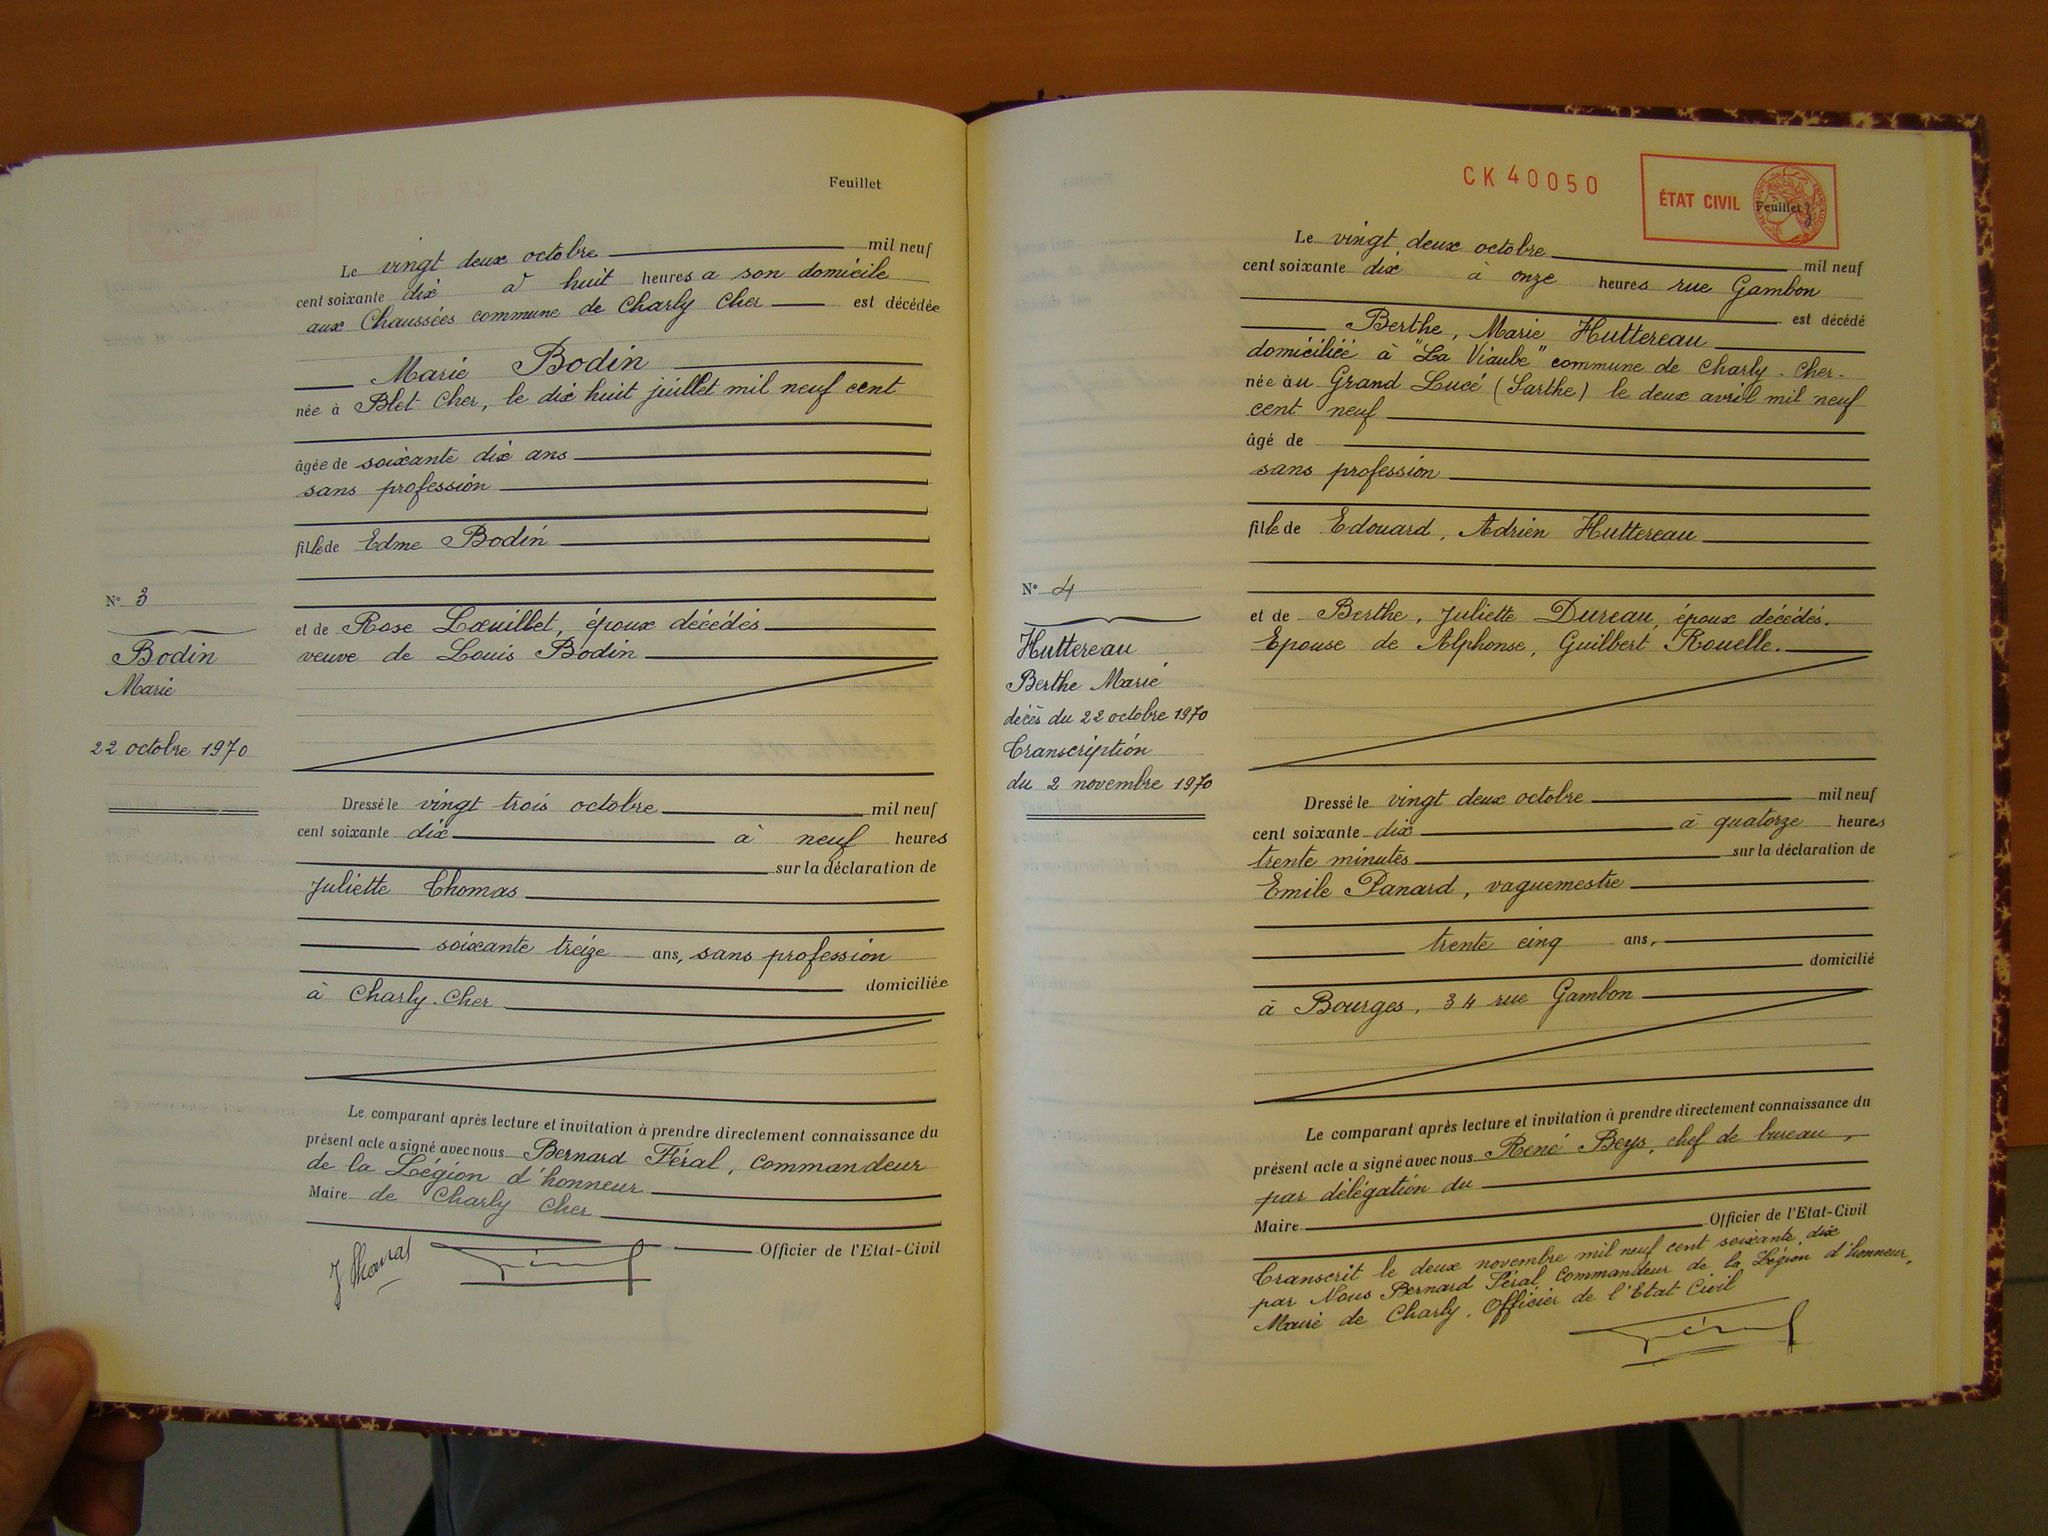 Feuillet
Le vingt deux octobre mil neuf
cent soixante dix à huit heures a son domicile
aux Chaussées commune de Charly Cher est décédée
Marie Bodin
née à Blet Cher, le dix huit juillet mil neuf cent
âgée de soixante dix ans
sans profession
fille de Edme Bodin
N° 3
Bodin
Marie
22 octobre 1970
et de Rose Lœuillet, époux décédés
veuve de Louis Bodin
Dressé le vingt trois octobre mil neuf
cent soixante dix à neuf heures
sur la déclaration de
Juliette Thomas
soixante treize ans, sans profession
domiciliée
à Charly. Cher
Le comparant après lecture et invitation à prendre directement connaissance du
présent acte a signé avec nous Bernard Féral, commandeur
de la Légion d'honneur
Maire de Charly Cher
Officier de l'Etat-Civil
J Thomas
CK 40050
ÉTAT CIVIL
Feuillet 3
Le vingt deux octobre mil neuf
cent soixante dix à onze heures rue Gambon
est décédé
Berthe, Marie Huttereau
domiciliée à "La Viaube" commune de Charly - Cher -
née au Grand Lucé (Sarthe) le deux avril mil neuf
cent neuf
âgé de
sans profession
fille de Edouard, Adrien Huttereau
N° 4
Huttereau
Berthe Marie
décès du 22 octobre 1970
Transcription
du 2 novembre 1970
et de Berthe, Juliette Dureau, époux décédés.
Epouse de Alphonse, Guilbert Rouelle.
Dressé le vingt deux octobre mil neuf
cent soixante dix à quatorze heures
trente minutes sur la déclaration de
Emile Panard, vaguemestre
trente cinq ans,
domicilié
à Bourges, 34 rue Gambon
Le comparant après lecture et invitation à prendre directement connaissance du
présent acte a signé avec nous René Beys, chef de bureau,
par délégation du
Maire
Officier de l'Etat-Civil
Transcrit le deux novembre mil neuf cent soixante dix
par Nous Bernard Féral, Commandeur de la Légion d'honneur,
Maire de Charly. Officier de l'Etat Civil